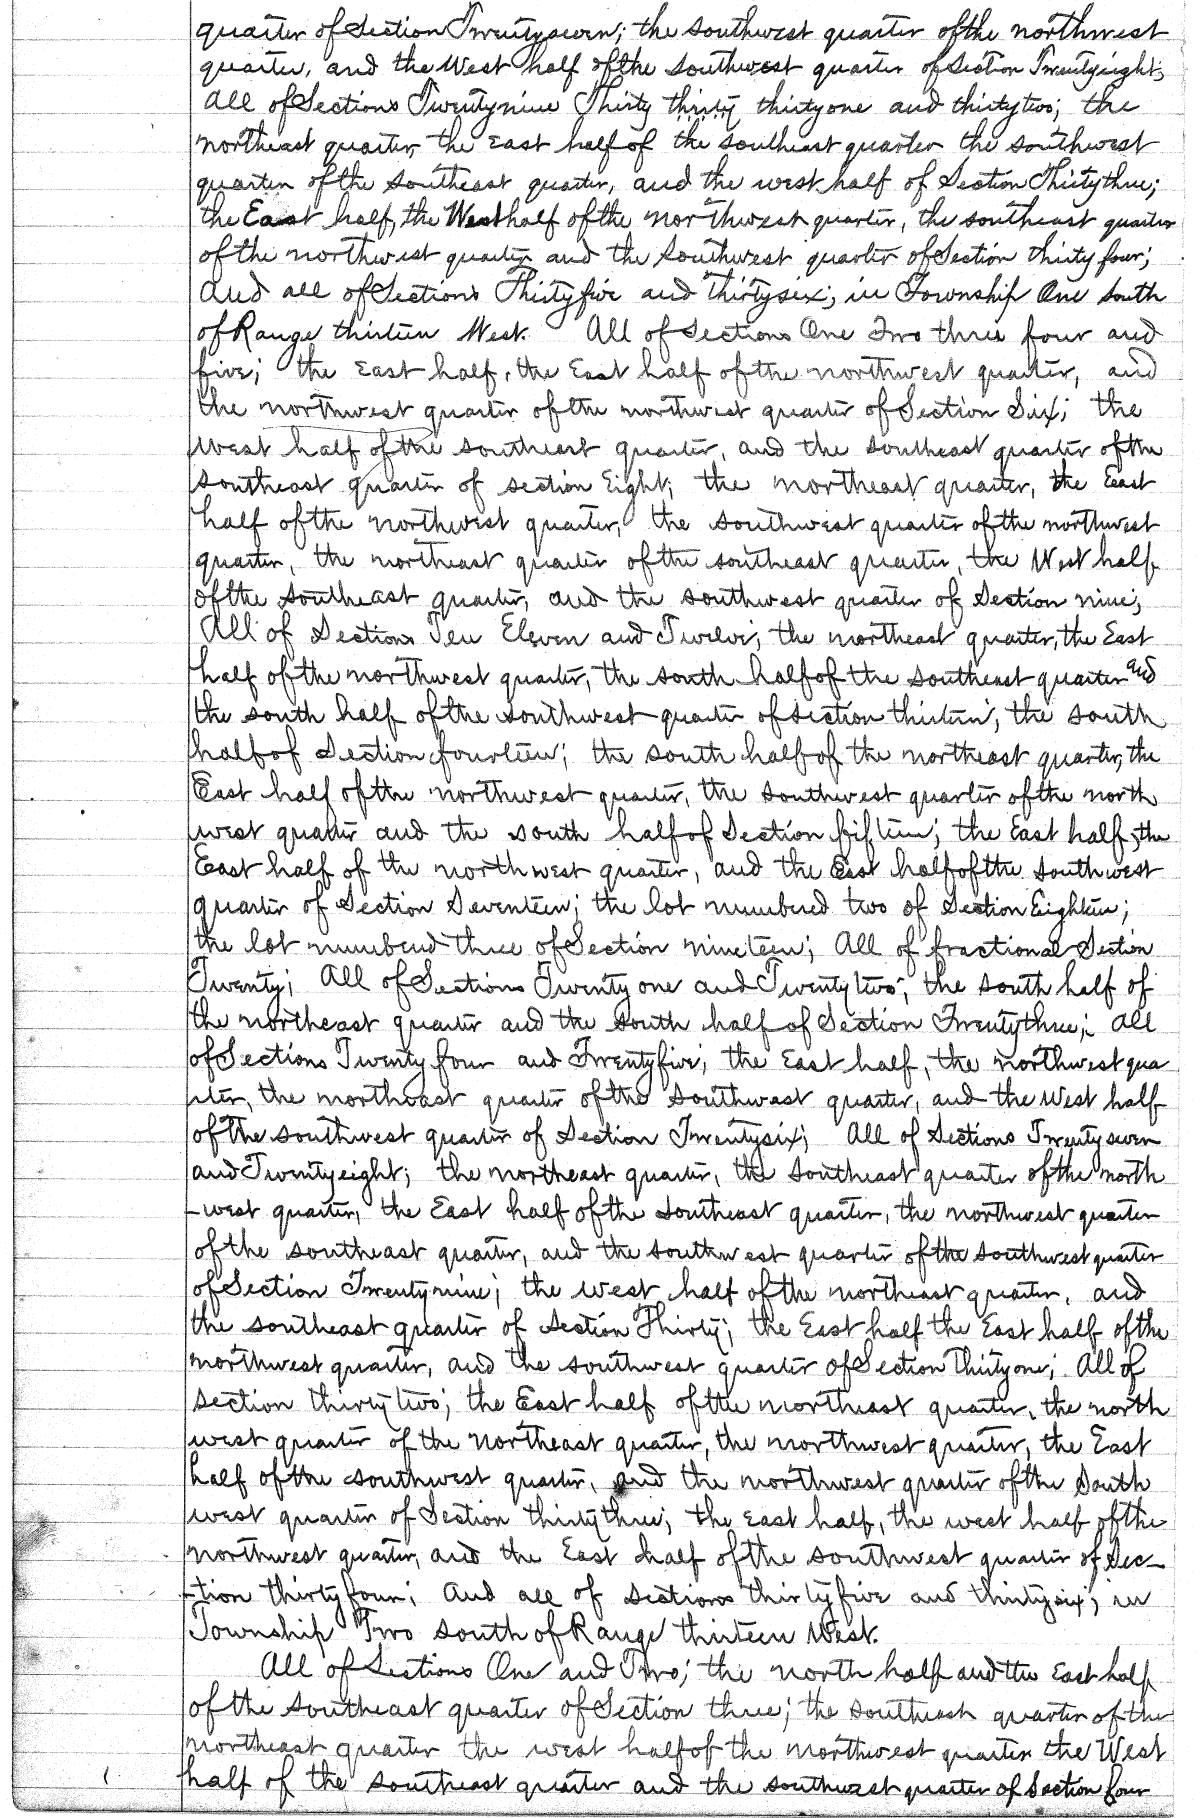 quarter of Section Twentyseven; the southwest quarter of the northwest
quarter, and the West half of the southwest quarter of Section Twentyeight;
All of Sections Twentynine Thirty thirty thirtyone and thirtytwo; the
northeast quarter, the East half of the southeast quarter the southwest
quarter of the southeast quarter, and the west half of Section Thirtythree;
the East half, the West half of the northwest quarter, the southeast quarter
of the northwest quarter and the southwest quarter of Section thirty four;
and all of Sections Thirtyfive and thirtysix; in Township One South
of Range thirteen West. All of Sections One Two three four and
five; the East half, the East half of the northwest quarter, and
the northwest quarter of the northwest quarter of Section Six; the
west half of the southeast quarter, and the southeast quarter of the
southeast quarter of section Eight; the northeast quarter, the East
half of the northwest quarter, the southwest quarter of the northwest
quarter, the northeast quarter of the southeast quarter, the West half
of the southeast quarter, and the southwest quarter of Section nine;
All of Sections Ten Eleven and Twelve; the northeast quarter, the East
half of the northwest quarter, the south half of the southeast quarter and
the south half of the southwest quarter of section thirteen; the south
half of Section fourteen; the south half of the northeast quarter, the
East half of the northwest quarter, the southwest quarter of the north
west quarter and the south half of Section fifteen; the East half, the
East half of the northwest quarter, and the East half of the southwest
quarter of Section Seventeen; the lot numbered two of Section Eighteen;
the lot numbered three of Section nineteen; All of fractional Section
Twenty; All of Sections Twenty one and Twenty two; the south half of
the northeast quarter and the South half of Section Twentythree; All
of Sections Twenty four and Twentyfive; the East half, the northwest qua
rter, the northeast quarter of the southwest quarter, and the West half
of the southwest quarter of Section Twentysix; All of Sections Twentyseven
and Twentyeight; the northeast quarter, the southeast quarter of the north
-west quarter, the East half of the southeast quarter, the northwest quarter
of the southeast quarter, and the southwest quarter of the southwest quarter
of Section Twentynine; the west half of the northeast quarter, and
the southeast quarter of Section Thirty; the East half the East half of the
northwest quarter, and the southwest quarter of Section Thirtyone; All of
section thirty two; the East half of the northeast quarter, the north
west quarter of the northeast quarter, the northwest quarter, the East
half of the southwest quarter, and the northwest quarter of the South
west quarter of Section thirtythree; the East half, the west half of the
northwest quarter, and the East half of the southwest quarter of Sec-
-tion thirtyfour; And all of sections thirtyfive and thirtysix; in
Township Two South of Range thirteen West.
All of Sections One and Two; the north half and the East half
of the southeast quarter of Section three; the southeast quarter of the
northeast quarter the west half of the northwest quarter the West
half of the southeast quarter and the southwest quarter of Section four